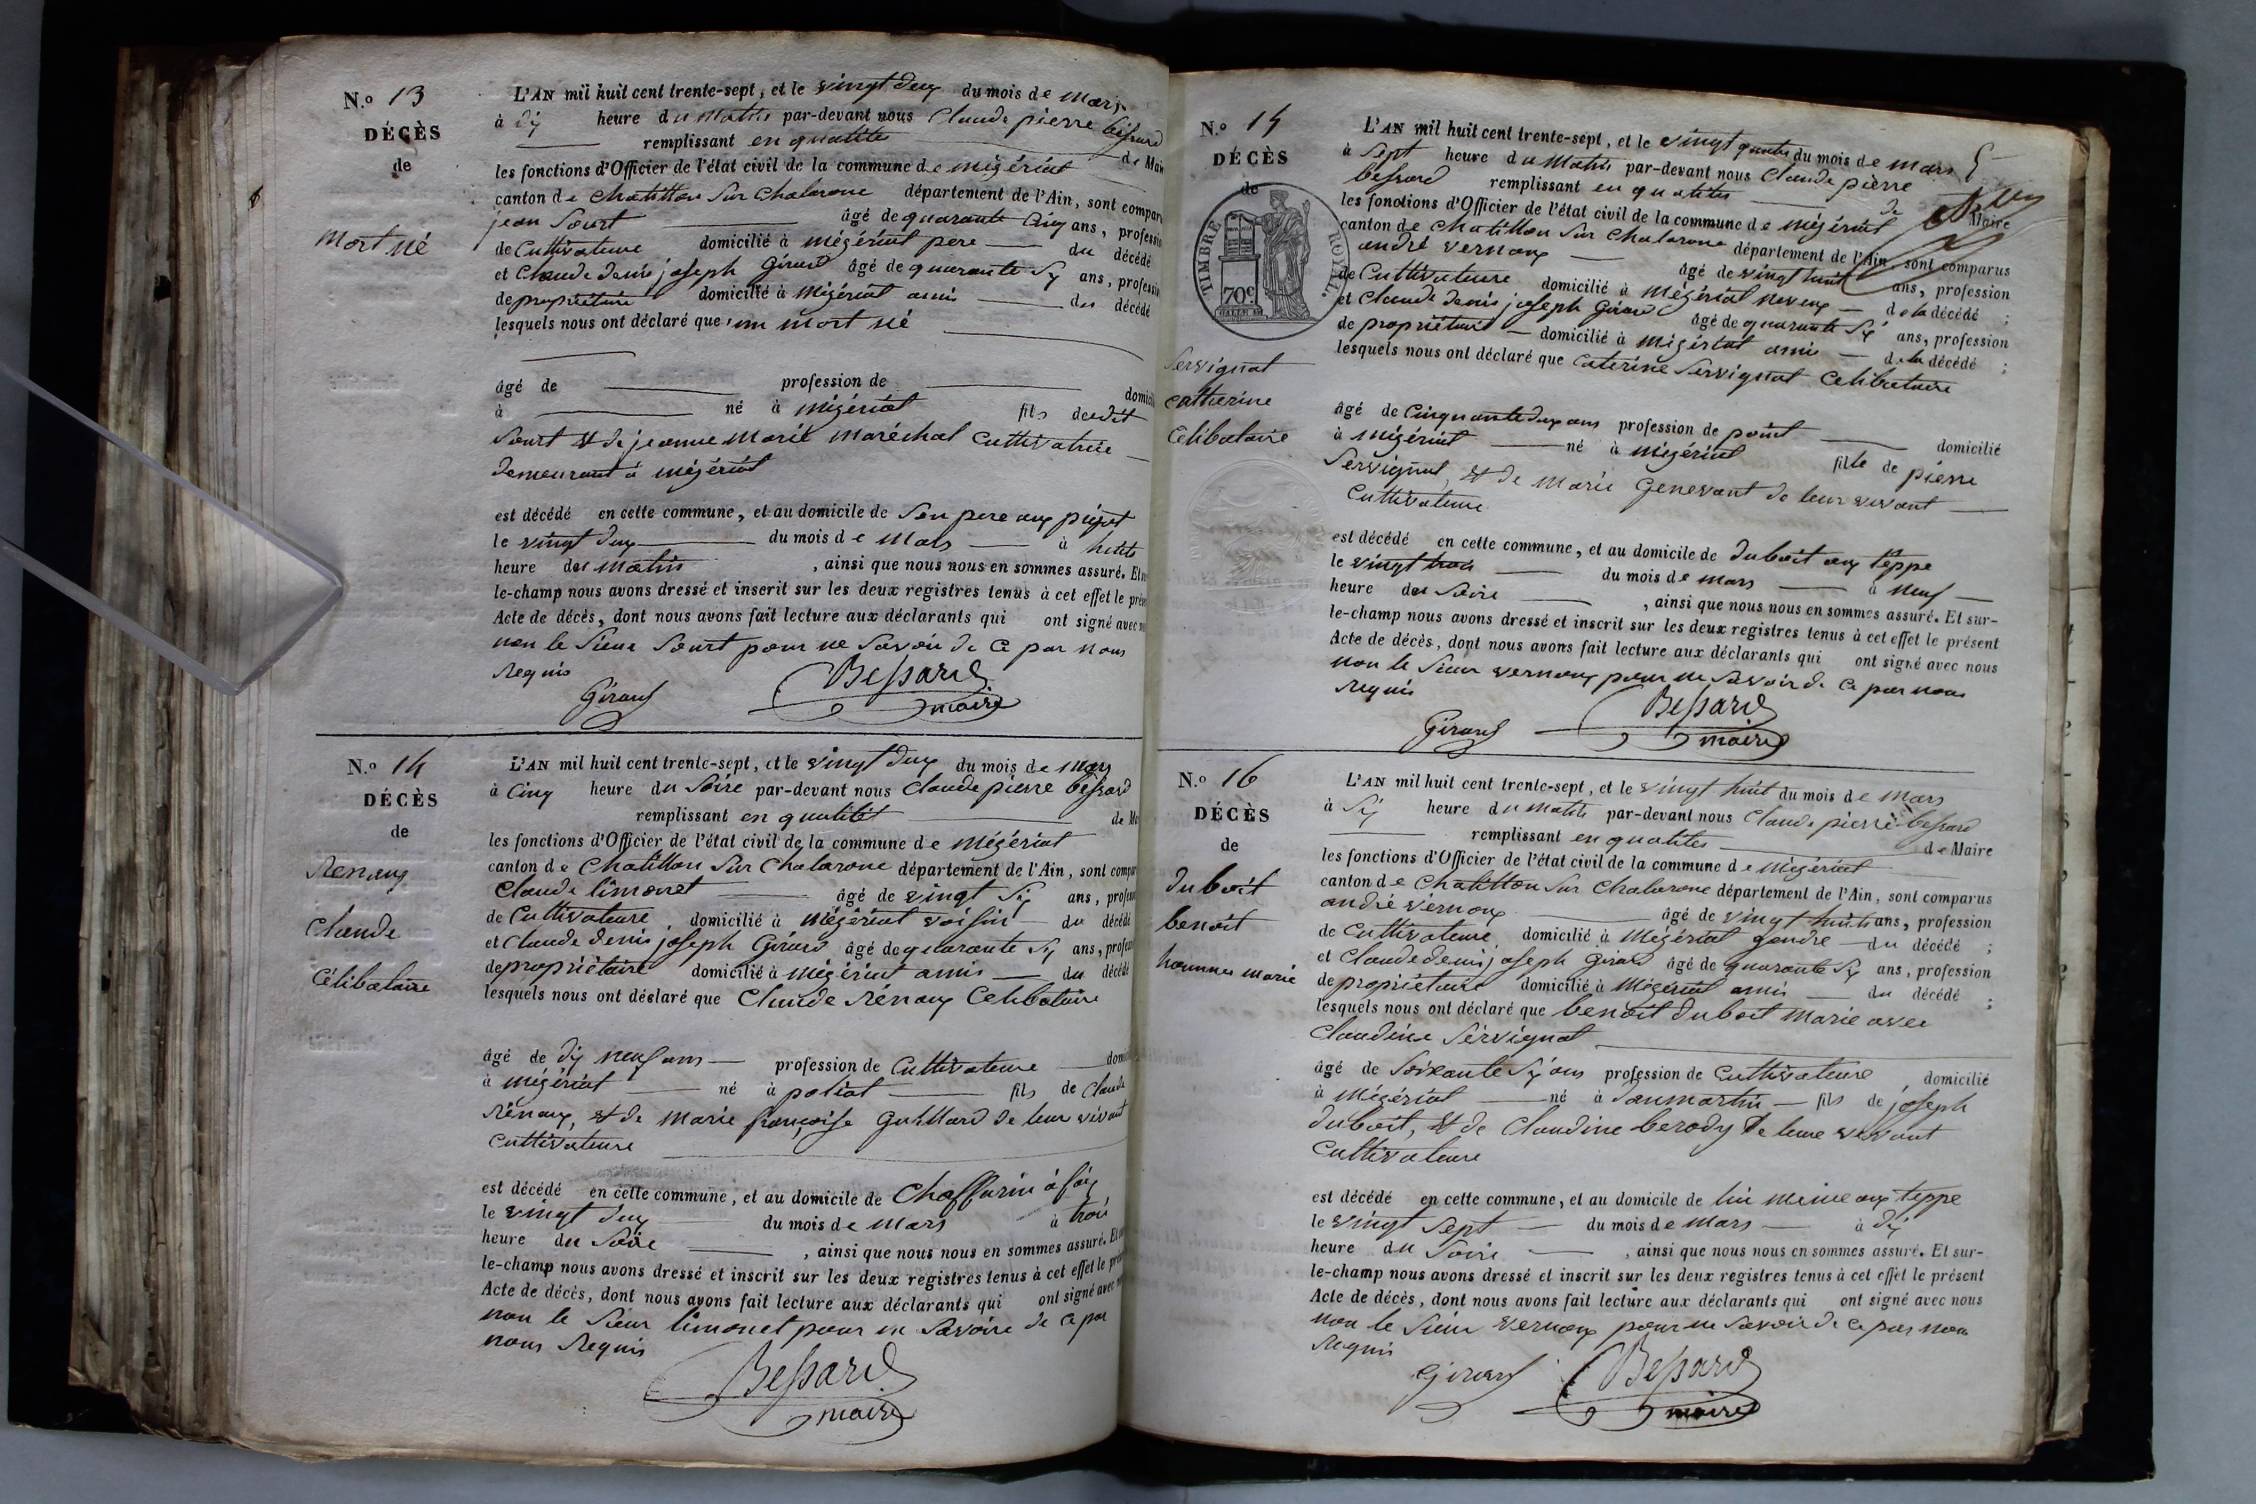 N.º 13
DÉCÈS
de
Mort né
L'AN mil huit cent trente-sept, et le vingt deux du mois de Mars
à dix heure du Matin par-devant nous Claude pierre bessard
remplissant en qualité de Maire
les fonctions d'Officier de l'état civil de la commune de mézériat
canton de Chatillon Sur Chalarone département de l'Ain, sont compar
jean Sourt âgé de quarante Cinq ans, professio
de Cultivateure domicilié à mézériat pere du décédé
et Claude denis joseph Girard âgé de quarante Six ans, professio
de propriétaire domicilié à Mézériat amis du décédé
lesquels nous ont déclaré que un mort né
âgé de profession de domici
à né à Mézériat fils deudit
Sourt et de jeanne Marie Maréchal Cultivatrice
demeurant à mézériat
est décédé en cette commune, et au domicile de Son pere aux
le vingt deux du mois de Mars à
heure du Matin , ainsi que nous nous en sommes assuré. Et
le-champ nous avons dressé et inscrit sur les deux registres tenus à cet effet le prés
Acte de décès, dont nous avons fait lecture aux déclarants qui ont signé avec n
non le Sieur Sourt pour ne Savoir de Ce par nous
Requis
Girard Bessard
maire
N.º 14
DÉCÈS
de
Renoux
Claude
Célibataire
L'AN mil huit cent trente-sept, et le vingt deux du mois de Mars
à Cinq heure du Soire par-devant nous Claude pierre bessard
remplissant en qualitét de Ma
les fonctions d'Officier de l'état civil de la commune de Mézériat
canton de Chatillon Sur Chalarone département de l'Ain, sont compar
Claude limonet âgé de vingt Six ans, profess
de Cultivateure domicilié à Mézériat voisin du décédé
et Claude denis joseph Girard âgé de quarante Six ans, profess
de propriétaire domicilié à Mézériat amis du décédé
lesquels nous ont déclaré que Claude Rénoux Celibataire
âgé de dix neuf ans profession de Cultivateure domici
à Mézériat né à poliat fils de Claude
Rénoux, et de Marie françoise Guillard de leur vivant
Cultivateure
est décédé en cette commune, et au domicile de Chaffurin
le vingt deux du mois de Mars à trois
heure du Soire , ainsi que nous nous en sommes assuré. Et
le-champ nous avons dressé et inscrit sur les deux registres tenus à cet effet le pré
Acte de décès, dont nous avons fait lecture aux déclarants qui ont signé avec
non le Sieur limonet pour ne Savoire de Ce par
nous Requis
Bessard
maire
N.º 15
DÉCÈS
de
TIMBRE ROYAL.
70c
Servignat
Catherine
Célibataire
L'AN mil huit cent trente-sept, et le vingt quatre du mois de mars
à Sept heure du Matin par-devant nous Claude pierre
bessard remplissant en qualités de Maire
les fonctions d'Officier de l'état civil de la commune de mézériat
canton de Chatillon Sur Chalarone département de l'Ain, sont comparus
andré Vernoux âgé de vingt huit ans, profession
de Cultivateure domicilié à Mézériat neveux de la décédé ;
et Claude denis joseph Girard âgé de quarante Six ans, profession
de propriétaire domicilié à Mézériat amis de la décédé ;
lesquels nous ont déclaré que Caterine Servignat Celibataire
âgé de Cinquante deux ans profession de point domicilié
à Mézériat né à Mézériat fille de pierre
Servignat, et de Marie Genevant de leur vivant
Cultivateure
est décédé en cette commune, et au domicile de duboit aux teppe
le vingt trois du mois de mars à neuf
heure du Soire , ainsi que nous nous en sommes assuré. Et sur-
le-champ nous avons dressé et inscrit sur les deux registres tenus à cet effet le présent
Acte de décès, dont nous avons fait lecture aux déclarants qui ont signé avec nous
non le Sieur Vernoux pour ne Savoir de Ce par nous
Requis
Girard Bessard
maire
N.º 16
DÉCÈS
de
duboit
benoit
hommes marié
L'AN mil huit cent trente-sept, et le vingt huit du mois de Mars
à Six heure du Matin par-devant nous Claude pierre bessard
remplissant en qualités de Maire
les fonctions d'Officier de l'état civil de la commune de Mézériat
canton de Chatillon Sur Chalarone département de l'Ain, sont comparus
andré Vernoux âgé de vingt huit ans, profession
de Cultivateure domicilié à Mézériat gendre du décédé ;
et Claude denis joseph Girard âgé de quarante Six ans, profession
de propriétaire domicilié à Mézériat amis du décédé ;
lesquels nous ont déclaré que benoit duboit Marié avec
Claudine Servignat
âgé de Soixante Six ans profession de Cultivateure , domicilié
à Mézériat né à fils de joseph
duboit, et de Claudine berody de leure vivant
Cultivateure
est décédé en cette commune, et au domicile de lui meme aux teppe
le vingt Sept du mois de mars à dix
heure du Soire , ainsi que nous nous en sommes assuré. Et sur-
le-champ nous avons dressé et inscrit sur les deux registres tenus à cet effet le présent
Acte de décès, dont nous avons fait lecture aux déclarants qui ont signé avec nous
non le Sieur Vernoux pour ne Savoir de Ce par nous
Requis
Girard Bessard
maire